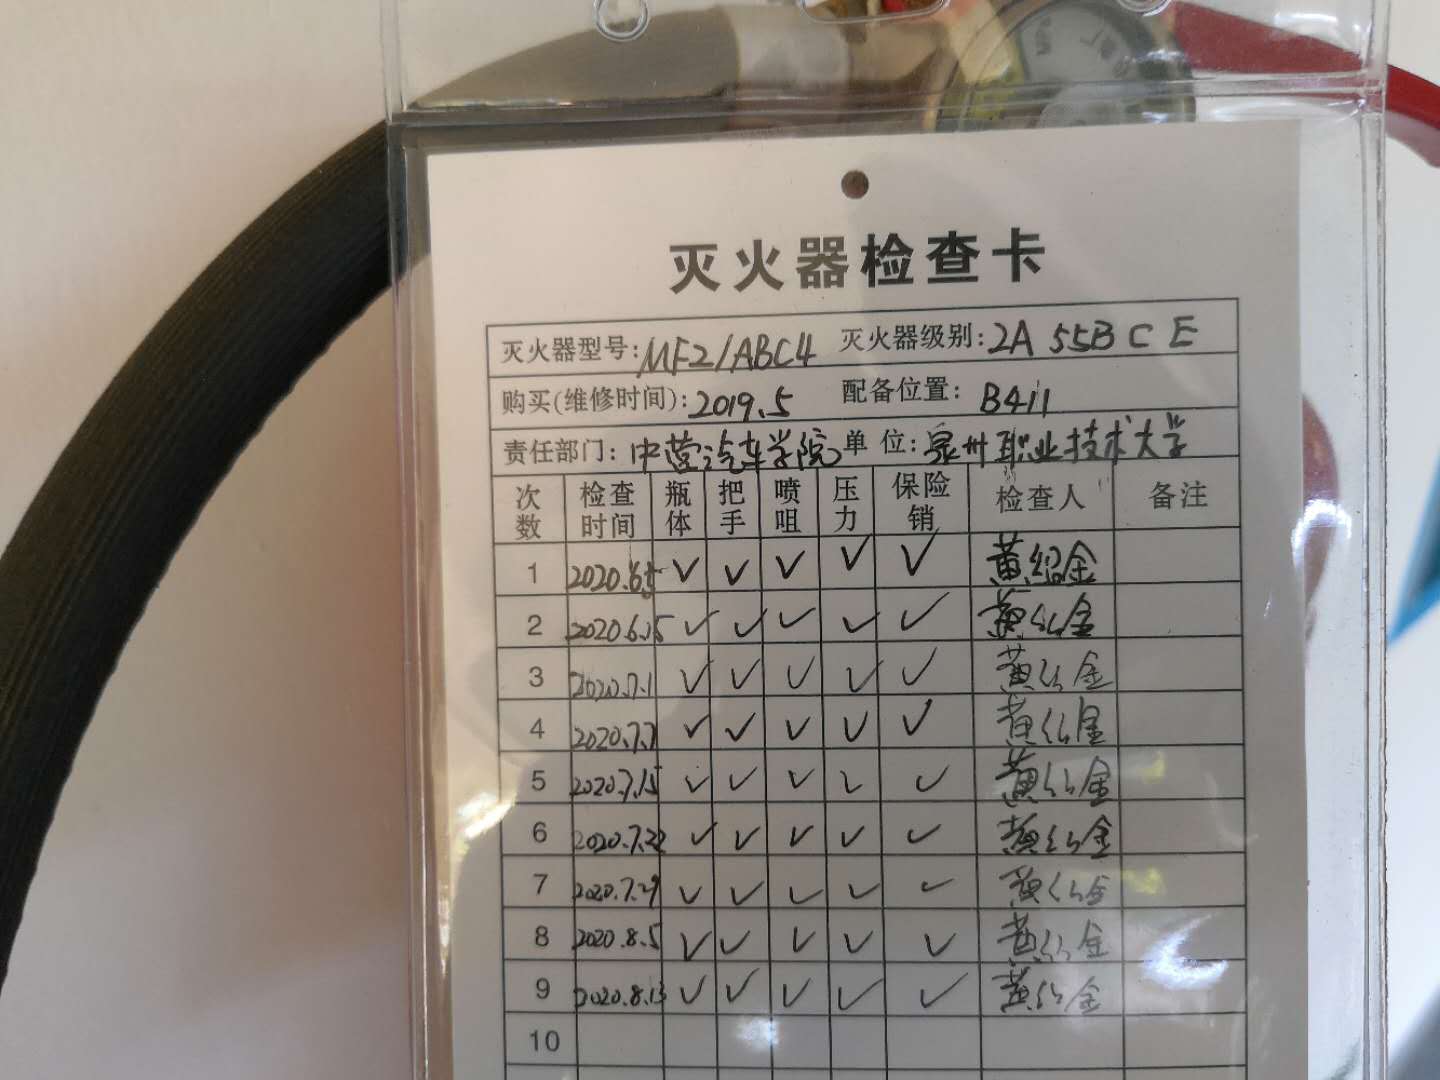 灭火器检查卡
灭火器型号: MF2/ABC4 灭火器级别: 2A 55B C E
购买(维修时间): 2019.5 配备位置: B411
责任部门: 中营汽车学院 单 位: 泉州职业技术大学
次数 检查时间 瓶体 把手 喷咀 压力 保险销 检查人 备注
1 2020.6.5 ✓ ✓ ✓ ✓ ✓ 黄绍金
2 2020.6.15 ✓ ✓ ✓ ✓ ✓ 黄绍金
3 2020.7.1 ✓ ✓ ✓ ✓ ✓ 黄绍金
4 2020.7.7 ✓ ✓ ✓ ✓ ✓ 黄绍金
5 2020.7.15 ✓ ✓ ✓ ✓ ✓ 黄绍金
6 2020.7.22 ✓ ✓ ✓ ✓ ✓ 黄绍金
7 2020.7.29 ✓ ✓ ✓ ✓ ✓ 黄绍金
8 2020.8.5 ✓ ✓ ✓ ✓ ✓ 黄绍金
9 2020.8.13 ✓ ✓ ✓ ✓ ✓ 黄绍金
10